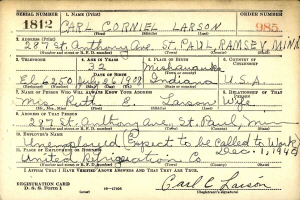 SERIAL NUMBER 1. NAME (Print) ORDER NUMBER
1812 CARL CORNIEL LARSON 985
2. ADDRESS (Print)
287 St. Anthony Ave. ST. PAUL, RAMSEY, MINN
3. TELEPHONE 4. AGE IN YEARS 5. PLACE OF BIRTH 6. COUNTRY OF CITIZENSHIP
32 Mishawaka
DATE OF BIRTH
El 6250 July 26, 1908 Indiana U.S.A.
7. NAME OF PERSON WHO WILL ALWAYS KNOW YOUR ADDRESS 8. RELATIONSHIP OF THAT PERSON
Mrs. Ruth E. Larson Wife
9. ADDRESS OF THAT PERSON
287 St. Anthony Ave. St. Paul, Minn
10. EMPLOYER'S NAME
Unemployed (Expect to be called to Work
11. PLACE OF EMPLOYMENT OR BUSINESS Dec. 1, 1940
United Refrigeration Co
I AFFIRM THAT I HAVE VERIFIED ABOVE ANSWERS AND THAT THEY ARE TRUE.
REGISTRATION CARD
D. S. S. Form 1 Carl C Larson
(Registrant's signature)